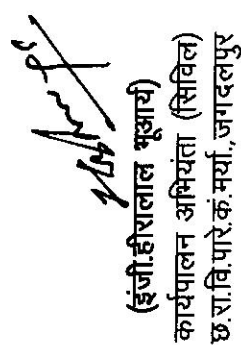 (इंजी.हीरालाल भूआर्य)
कार्यपालन अभियंता (सिविल)
छ.रा.वि.पारे.कं.मर्या.,जगदलपुर